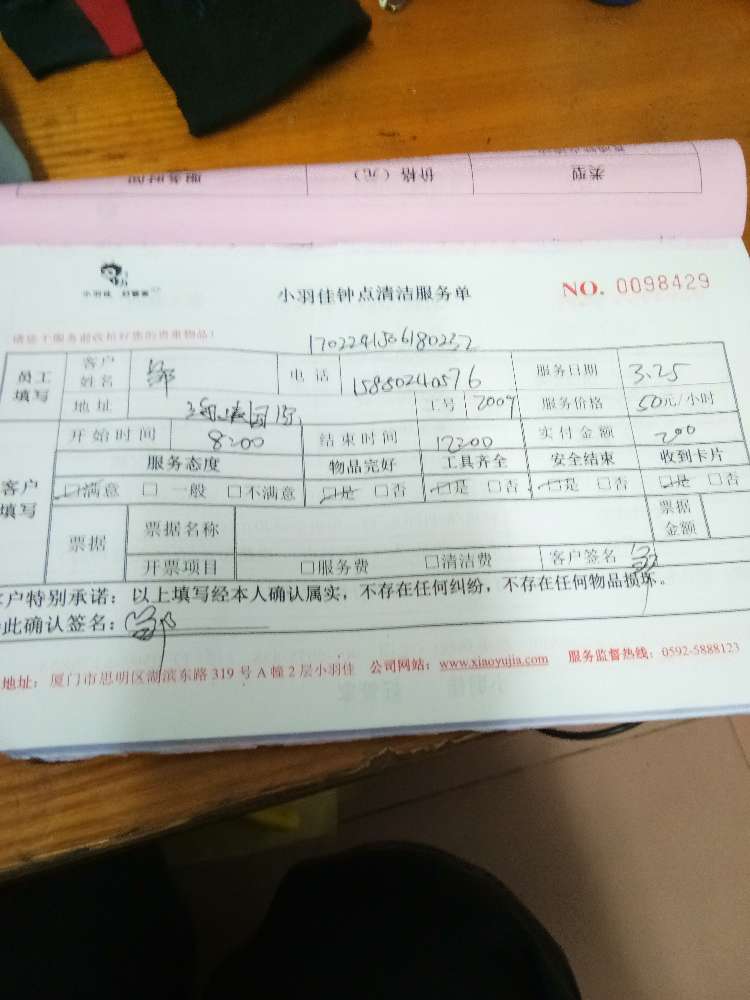 类型 价格（元） 服务时间
小羽佳 好管家
小羽佳钟点清洁服务单 NO. 0098429
请您于服务前收拾好您的贵重物品！
员工填写 客户姓名 邹 电话 15880240576 服务日期 3.25
地址 工号 2009 服务价格 50元/小时
客户填写 开始时间 8:00 结束时间 12:00 实付金额 200
服务态度 物品完好 工具齐全 安全结束 收到卡片
□满意 □一般 □不满意 □是 □否 □是 □否 □是 □否 □是 □否
票据 票据名称 票据金额
开票项目 □服务费 □清洁费 客户签名 邹
客户特别承诺：以上填写经本人确认属实，不存在任何纠纷，不存在任何物品损坏。
此确认签名：邹
地址：厦门市思明区湖滨东路 319 号 A 幢 2 层小羽佳 公司网站：www.xiaoyujia.com 服务监督热线：0592-5888123